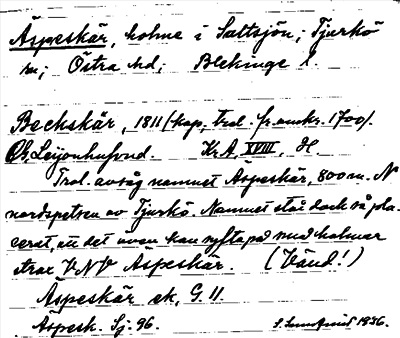 Äspeskär, holme i Saltsjön; Tjurkö
sn; Östra hd; Blekinge l.
Beckskär, 1811 (kop, trol. fr. omkr. 1700).
Ch. Leijonhufvud. KrA, XVIII, H.
Trol. avsåg namnet Äspeskär, 800 m. N
nordspetsen av Tjurkö. Namnet står dock så pla-
cerat, att det även kan syfta på med holmar
strax VNV Äspeskär. (Vänd!)
Äspeskär ek, G 11.
Äspesk. Sj. 96. 1936.